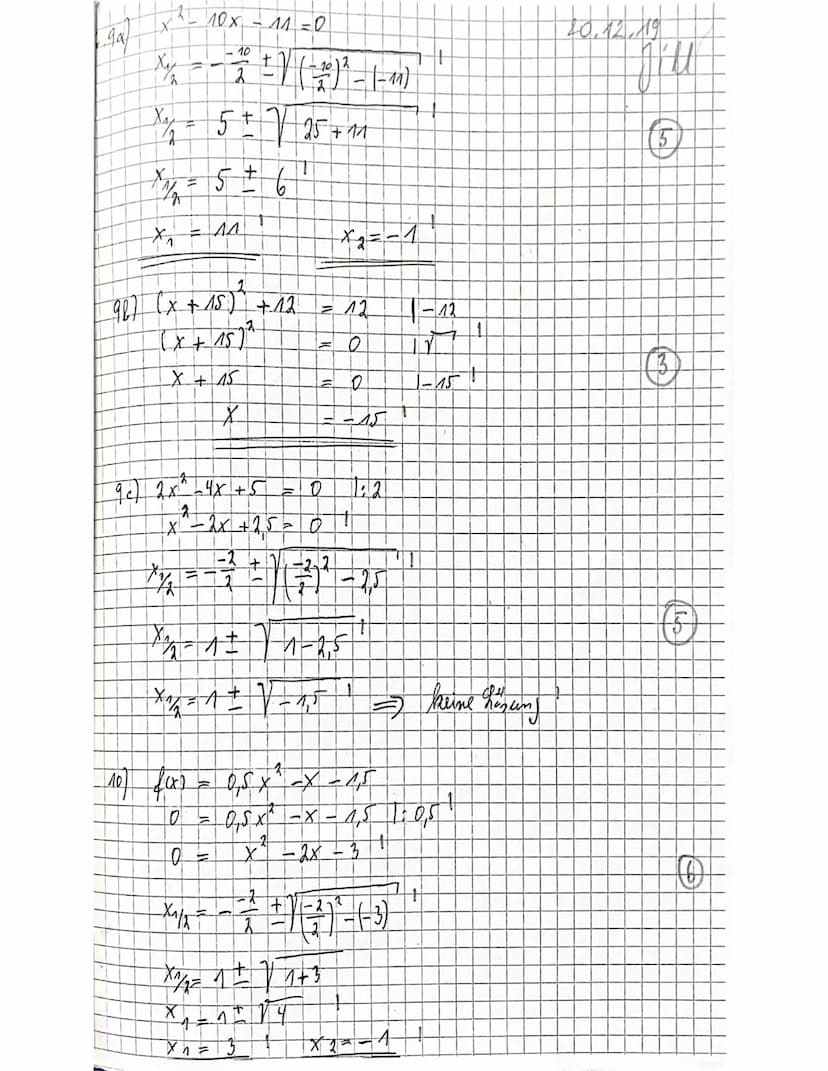 20.12.19
9a) x² - 10x - 11 = 0
Jill
x₁/₂ = - -10/2 ± √((-10/2)² - (-11)) '
x₁/₂ = 5 ± √(25 + 11) '
(5)
x₁/₂ = 5 ± 6 '
x₁ = 11 ' x₂ = -1 '
9b) (x + 15)² + 12 = 12 | -12
(x + 15)² = 0 | √ '
x + 15 = 0 | -15 '
(3)
x = -15 '
9c) 2x² - 4x + 5 = 0 | : 2
x² - 2x + 2,5 = 0 '
x₁/₂ = - -2/2 ± √((-2/2)² - 2,5) '
x₁/₂ = 1 ± √(1 - 2,5) '
(5)
x₁/₂ = 1 ± √(-1,5) ' ⇒ keine Lösung '
10) f(x) = 0,5x² - x - 1,5
0 = 0,5x² - x - 1,5 | : 0,5 '
0 = x² - 2x - 3 '
(6)
x₁/₂ = - -2/2 ± √((-2/2)² - (-3)) '
x₁/₂ = 1 ± √(1 + 3)
x₁ = 1 ± √4 '
x₁ = 3 ' x₂ = -1 '